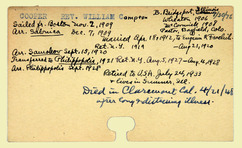 COOPER REV. WILLIAM Compton
B. Bridgeport, Illinois
Wheaton 1906
Sailed fr. Boston Nov. 2, 1909
McCormick 1908
Arr. Salonica Dec. 7, 1909
Pastor, Buffield, Colo.
Married Apr. 18, 1912, to Eugenia F.
Ret. N.Y. 1919 - Aug 21, 1920
Arr. Samokov Sept. 15, 1920
Transferred to Philippopolis, 1921 Ret. N.Y. Aug. 5, 1927 - Aug. 4, 1928
Arr. Philippopolis Sept. 1928
Retired to USA. July 24, 1933
& lives in Sumner, Ill.
Died in Claremont Cal. 4/21/48
after long & distressing illness.